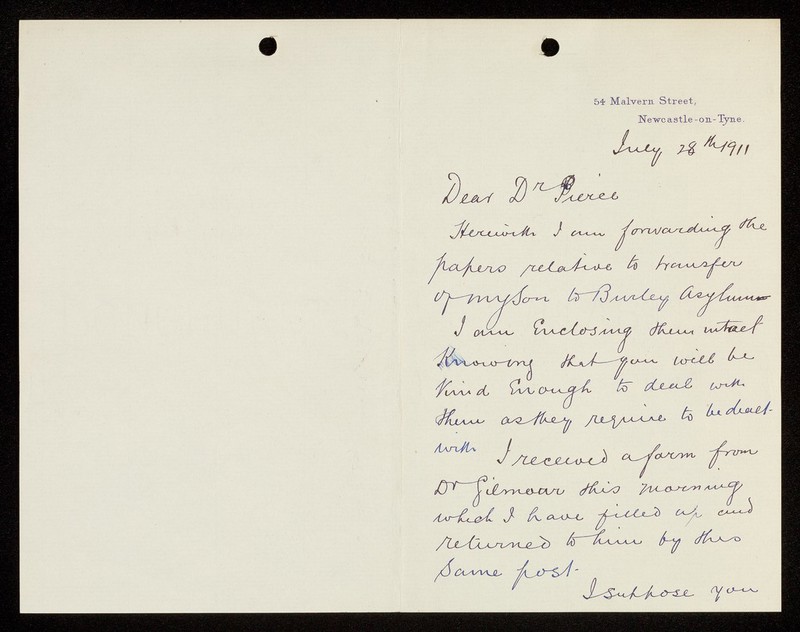 54 Malvern Street,
Newcastle-on-Tyne.
July 28th 1911
Dear Dr Pierce
Herewith I am forwarding the
papers relative to transfer
of my Son to Burley Asylum
I am Enclosing them intact
Knowing that you will be
Kind Enough to deal with
them as they require to be dealt
with I received a form from
Dr Gilmour this morning
which I have filled up and
returned to him by this
Same post.
I suppose you